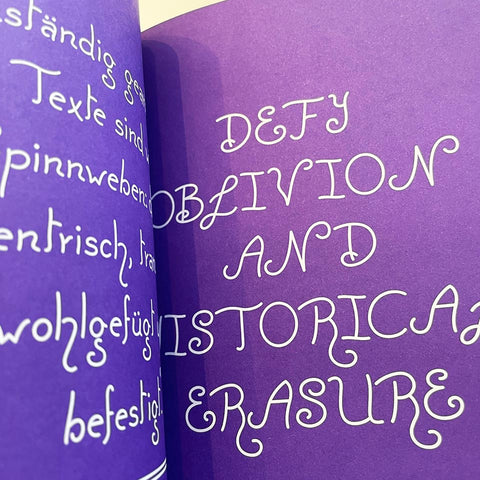 ständig
Texte sind
Spinnweben:
entrisch,
wohlgefügt
befestigt.
DEFY
OBLIVION
AND
HISTORICAL
ERASURE